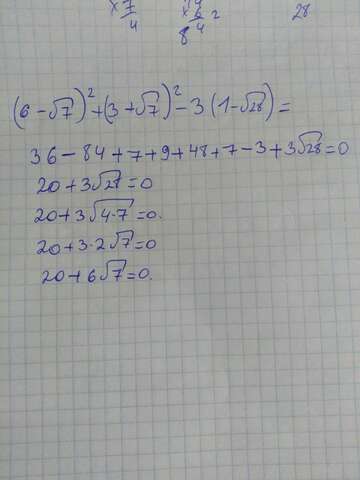 ×7 ×6 2 28
4 4
8
(6 - √7)² + (3 + √7)² - 3(1 - √28) =
36 - 84 + 7 + 9 + 48 + 7 - 3 + 3√28 = 0
20 + 3√28 = 0
20 + 3√4·7 = 0.
20 + 3·2√7 = 0
20 + 6√7 = 0.